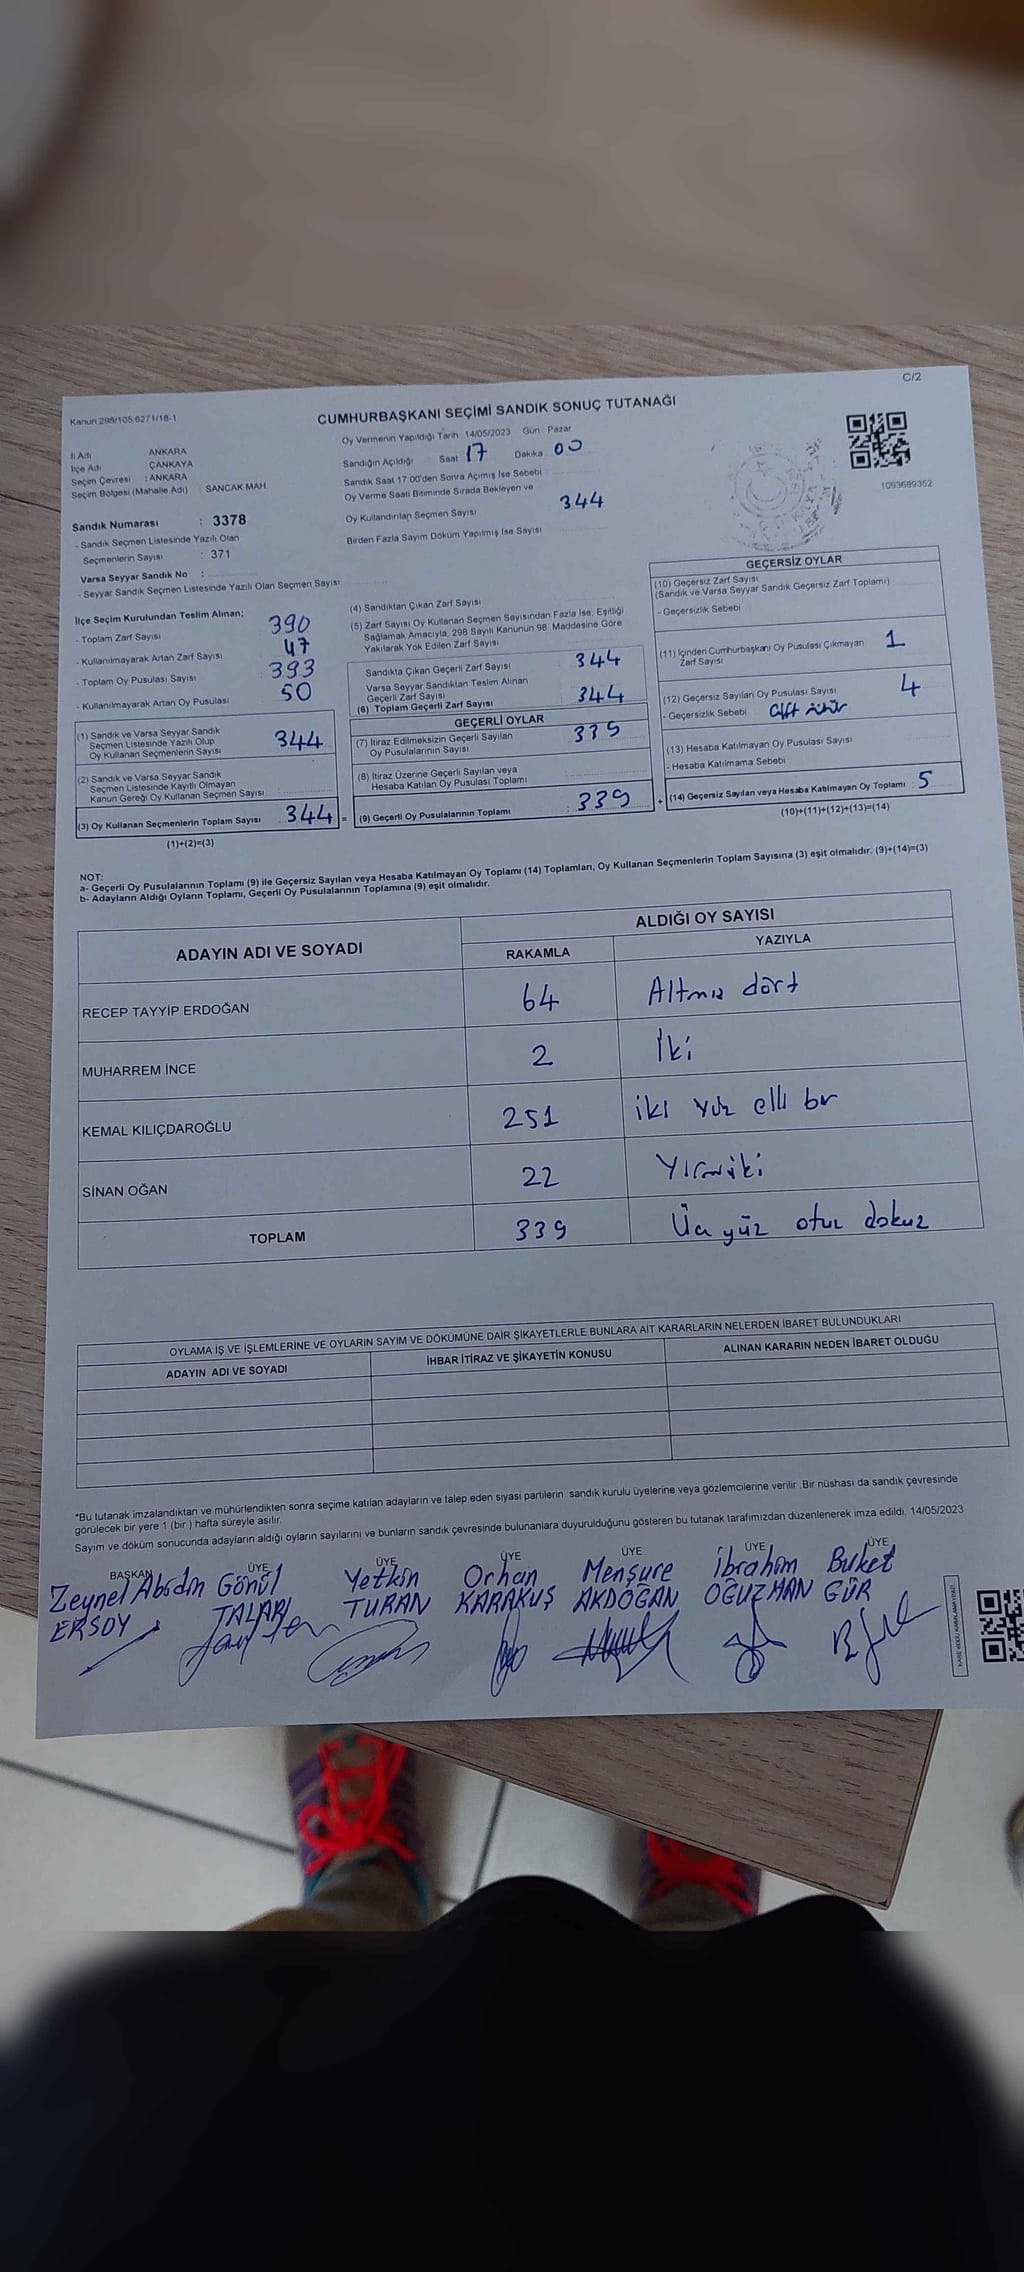 C/2
Kanun:298/105,6271/18-1
CUMHURBAŞKANI SEÇİMİ SANDIK SONUÇ TUTANAĞI
İl Adı ANKARA
İlçe Adı ÇANKAYA
Seçim Çevresi : ANKARA
Seçim Bölgesi (Mahalle Adı) SANCAK MAH
Sandık Numarası : 3378
- Sandık Seçmen Listesinde Yazılı Olan
Seçmenlerin Sayısı : 371
Varsa Seyyar Sandık No :
- Seyyar Sandık Seçmen Listesinde Yazılı Olan Seçmen Sayısı
Oy Vermenin Yapıldığı Tarih :14/05/2023 Gün Pazar
Sandığın Açıldığı Saat 17 Dakika 00
Sandık Saat 17.00'den Sonra Açımış İse Sebebi
Oy Verme Saati Bitiminde Sırada Bekleyen ve
Oy Kullandırılan Seçmen Sayısı 344
Birden Fazla Sayım Döküm Yapılmış İse Sayısı
1093689362
İlçe Seçim Kurulundan Teslim Alınan;
- Toplam Zarf Sayısı 390
- Kullanılmayarak Artan Zarf Sayısı 47
- Toplam Oy Pusulası Sayısı 393
- Kullanılmayarak Artan Oy Pusulası 50
(1) Sandık ve Varsa Seyyar Sandık
Seçmen Listesinde Yazılı Olup
Oy Kullanan Seçmenlerin Sayısı 344
(2) Sandık ve Varsa Seyyar Sandık
Seçmen Listesinde Kayıtlı Olmayan
Kanun Gereği Oy Kullanan Seçmen Sayısı
(3) Oy Kullanan Seçmenlerin Toplam Sayısı : 344 =
(1)+(2)=(3)
(4) Sandıktan Çıkan Zarf Sayısı
(5) Zarf Sayısı Oy Kullanan Seçmen Sayısından Fazla İse, Eşitliği
Sağlamak Amacıyla, 298 Sayılı Kanunun 98. Maddesine Göre
Yakılarak Yok Edilen Zarf Sayısı
Sandıkta Çıkan Geçerli Zarf Sayısı 344
Varsa Seyyar Sandıktan Teslim Alınan
Geçerli Zarf Sayısı
(6) Toplam Geçerli Zarf Sayısı 344
GEÇERLİ OYLAR
(7) İtiraz Edilmeksizin Geçerli Sayılan
Oy Pusulalarının Sayısı 339
(8) İtiraz Üzerine Geçerli Sayılan veya
Hesaba Katılan Oy Pusulası Toplamı
(9) Geçerli Oy Pusulalarının Toplamı : 339 +
GEÇERSİZ OYLAR
(10) Geçersiz Zarf Sayısı
(Sandık ve Varsa Seyyar Sandık Geçersiz Zarf Toplamı)
- Geçersizlik Sebebi
(11) İçinden Cumhurbaşkanı Oy Pusulası Çıkmayan
Zarf Sayısı 1
(12) Geçersiz Sayılan Oy Pusulası Sayısı 4
- Geçersizlik Sebebi Çift mühür
(13) Hesaba Katılmayan Oy Pusulası Sayısı
- Hesaba Katılmama Sebebi :
(14) Geçersiz Sayılan veya Hesaba Katılmayan Oy Toplamı : 5
(10)+(11)+(12)+(13)=(14)
NOT:
a- Geçerli Oy Pusulalarının Toplamı (9) ile Geçersiz Sayılan veya Hesaba Katılmayan Oy Toplamı (14) Toplamları, Oy Kullanan Seçmenlerin Toplam Sayısına (3) eşit olmalıdır. (9)+(14)=(3)
b- Adayların Aldığı Oyların Toplamı, Geçerli Oy Pusulalarının Toplamına (9) eşit olmalıdır.
ADAYIN ADI VE SOYADI ALDIĞI OY SAYISI
RAKAMLA YAZIYLA
RECEP TAYYİP ERDOĞAN 64 Altmış dört
MUHARREM İNCE 2 İki
KEMAL KILIÇDAROĞLU 251 iki yüz elli bir
SİNAN OĞAN 22 Yirmiiki
TOPLAM 339 Üç yüz otuz dokuz
OYLAMA İŞ VE İŞLEMLERİNE VE OYLARIN SAYIM VE DÖKÜMÜNE DAİR ŞİKAYETLERLE BUNLARA AİT KARARLARIN NELERDEN İBARET BULUNDUKLARI
ADAYIN ADI VE SOYADI İHBAR İTİRAZ VE ŞİKAYETİN KONUSU ALINAN KARARIN NEDEN İBARET OLDUĞU
*Bu tutanak imzalandıktan ve mühürlendikten sonra seçime katılan adayların ve talep eden siyasi partilerin sandık kurulu üyelerine veya gözlemcilerine verilir .Bir nüshası da sandık çevresinde
görülecek bir yere 1 (bir ) hafta süreyle asılır.
Sayım ve döküm sonucunda adayların aldığı oyların sayılarını ve bunların sandık çevresinde bulunanlara duyurulduğunu gösteren bu tutanak tarafımızdan düzenlenerek imza edildi. 14/05/2023
BAŞKAN ÜYE ÜYE ÜYE ÜYE ÜYE ÜYE
Zeynel Abidin Gönül Yetkin Orhan Menşure İbrahim Buket
ERSOY TALARI TURAN KARAKUŞ AKDOĞAN OĞUZHAN GÜR